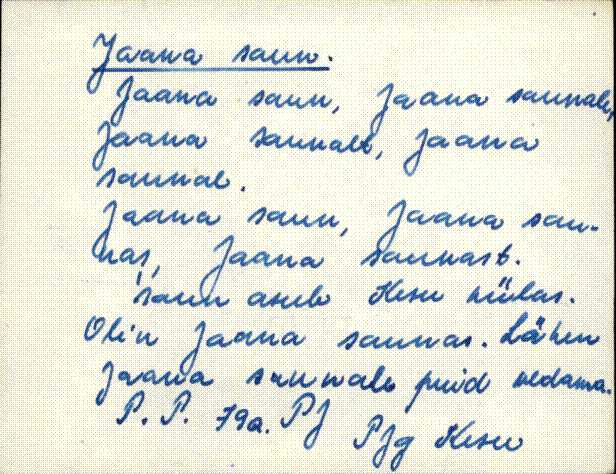 Jaana saun.
Jaana saun, Jaana saunale,
Jaana saunalt, Jaana
saunal.
Jaana saun, Jaana sau-
nas, Jaana saunast.
Saun asub Kesu külas.
Olin Jaana saunas. Lähen
Jaana saunale puid vedama.
P. P. 79a. PJ
PJg Kesu